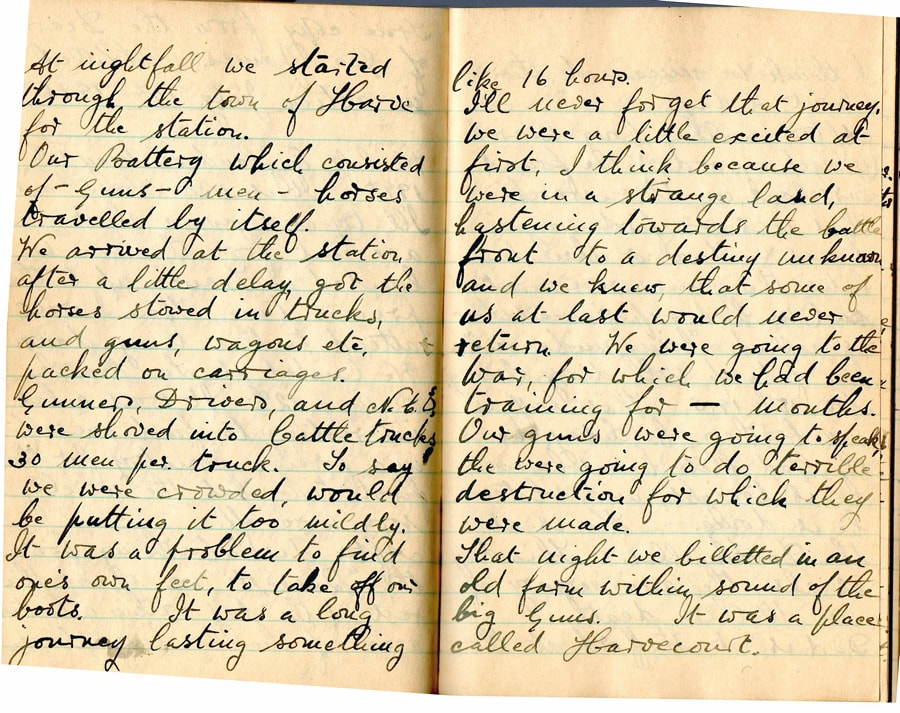 At nightfall we started
through the town of Harve
for the station.
Our Battery which consisted
of - Guns - men - horses
travelled by itself.
We arrived at the station
after a little delay, got the
horses stowed in trucks,
and guns, wagons etc,
packed on carriages.
Gunners, Drivers, and N.C.O's
were shoved into cattle trucks
30 men per. truck. To say
we were crowded, would
be putting it too mildly.
It was a problem to find
one's own feet, to take off our
boots. It was a long
journey lasting something
like 16 hours.
I'll never forget that journey.
We were a little excited at
first, I think because we
were in a strange land,
hastening towards the battle
front to a destiny unknown
and we knew, that some of
us at last would never
return. We were going to the
War, for which we had been
training for — months.
Our guns were going to speak,
the were going to do terrible
destruction for which they
were made.
That night we billetted in an
old farm within sound of the
big Guns. It was a place
called Harvecourt.